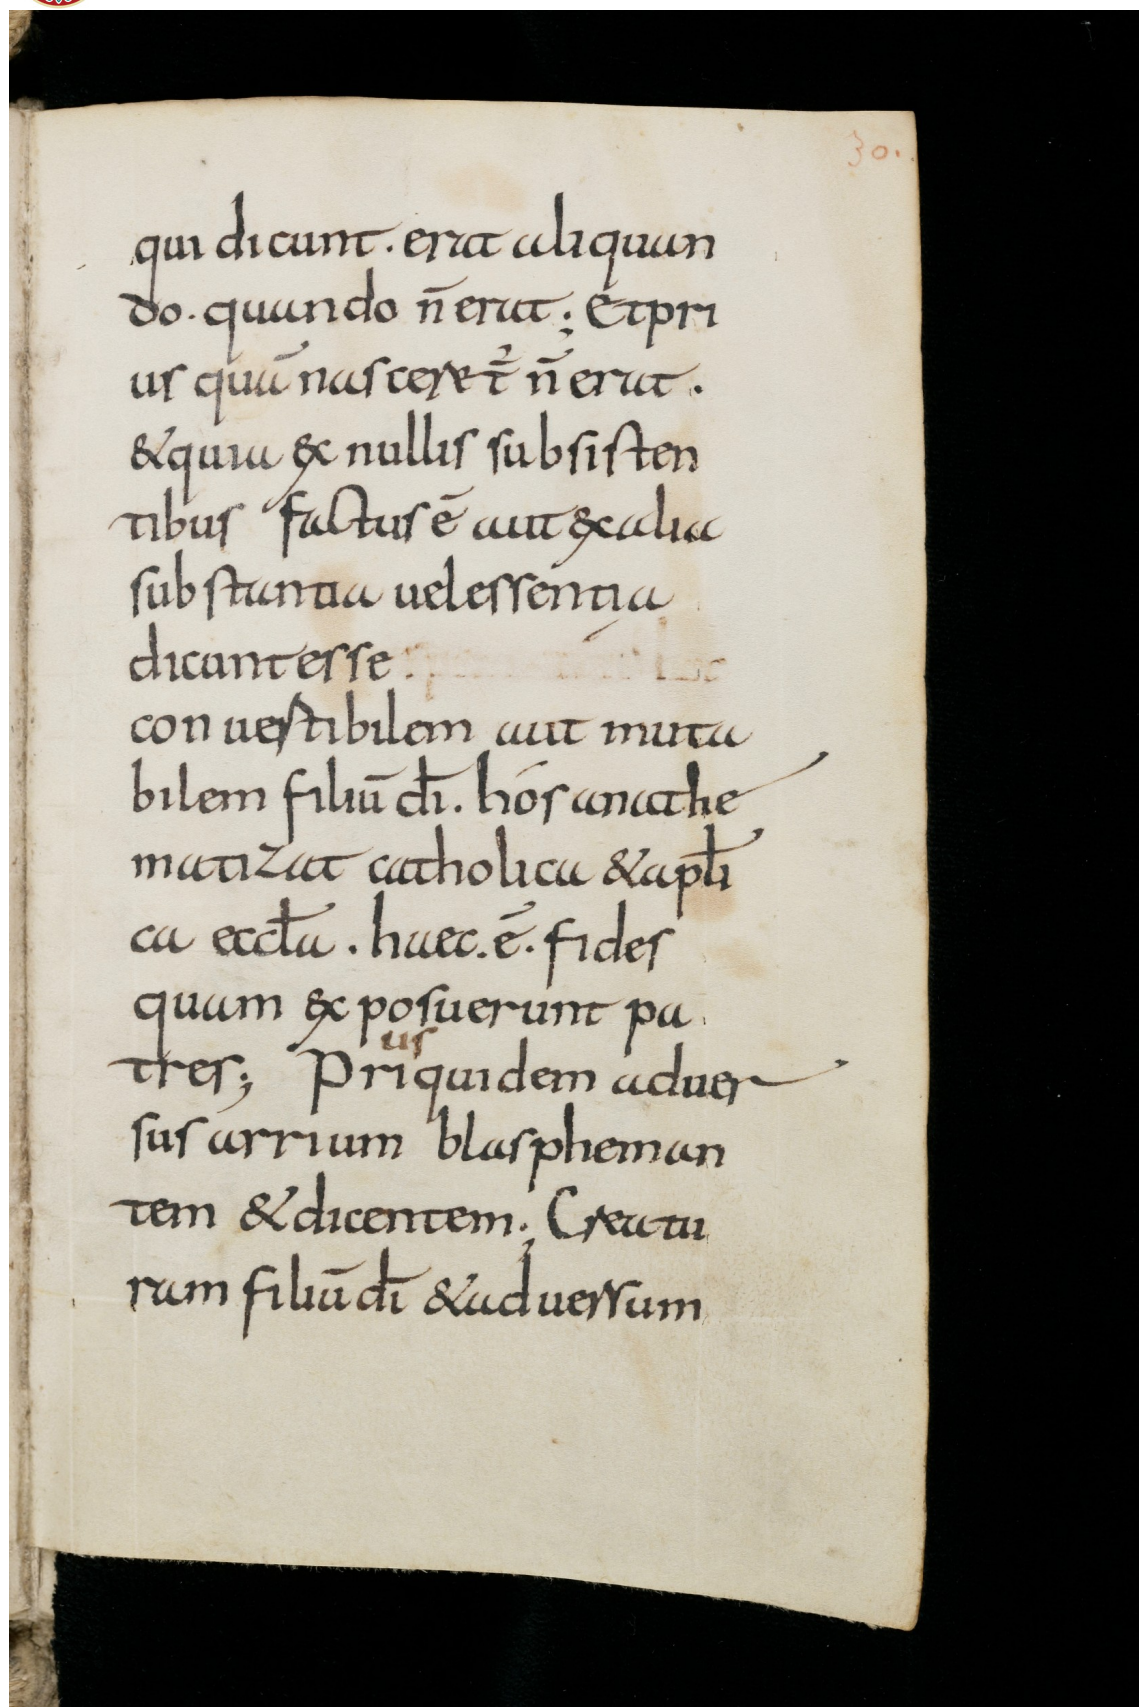 30.
qui dicunt. erat aliquan
do. quando n̄ erat; Et pri
us quā nasceret̄ n̄ erat.
& quia ex nullis subsisten
tibus factus ē aut ex alia
substantia uel essentia
dicant esse
conuestibilem aut muta
bilem filiū dī. hós anathe
matizat catholica & aptłi
ca eccła. haec. ē. fides
quam exposuerunt pa
tres; Prius quidem aduer
sus arrium blaspheman
tem & dicentem; Creatu
ram filiū dī & aduersum